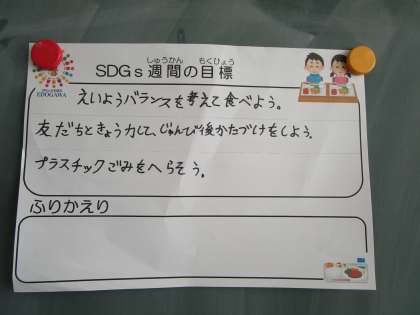 しゅうかん もくひょう
SDGs週間の目標
EDOGAWA
えいようバランスを考えて食べよう。
友だちときょう力して、じゅんび後かたづけをしよう。
プラスチックごみをへらそう。
ふりかえり